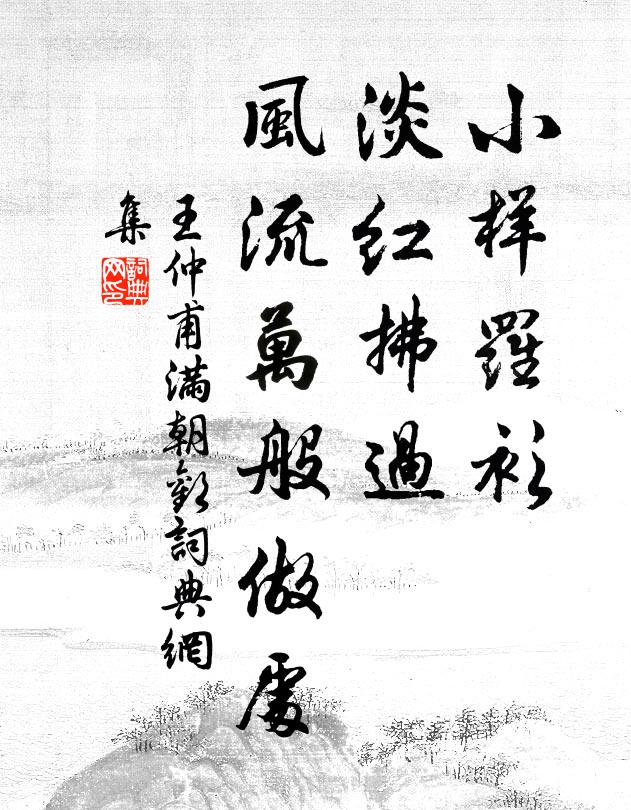 小样羅衫
淡红拂過
風流萬般做處
王仲甫满朝歡詞典網
集
詞典
网印